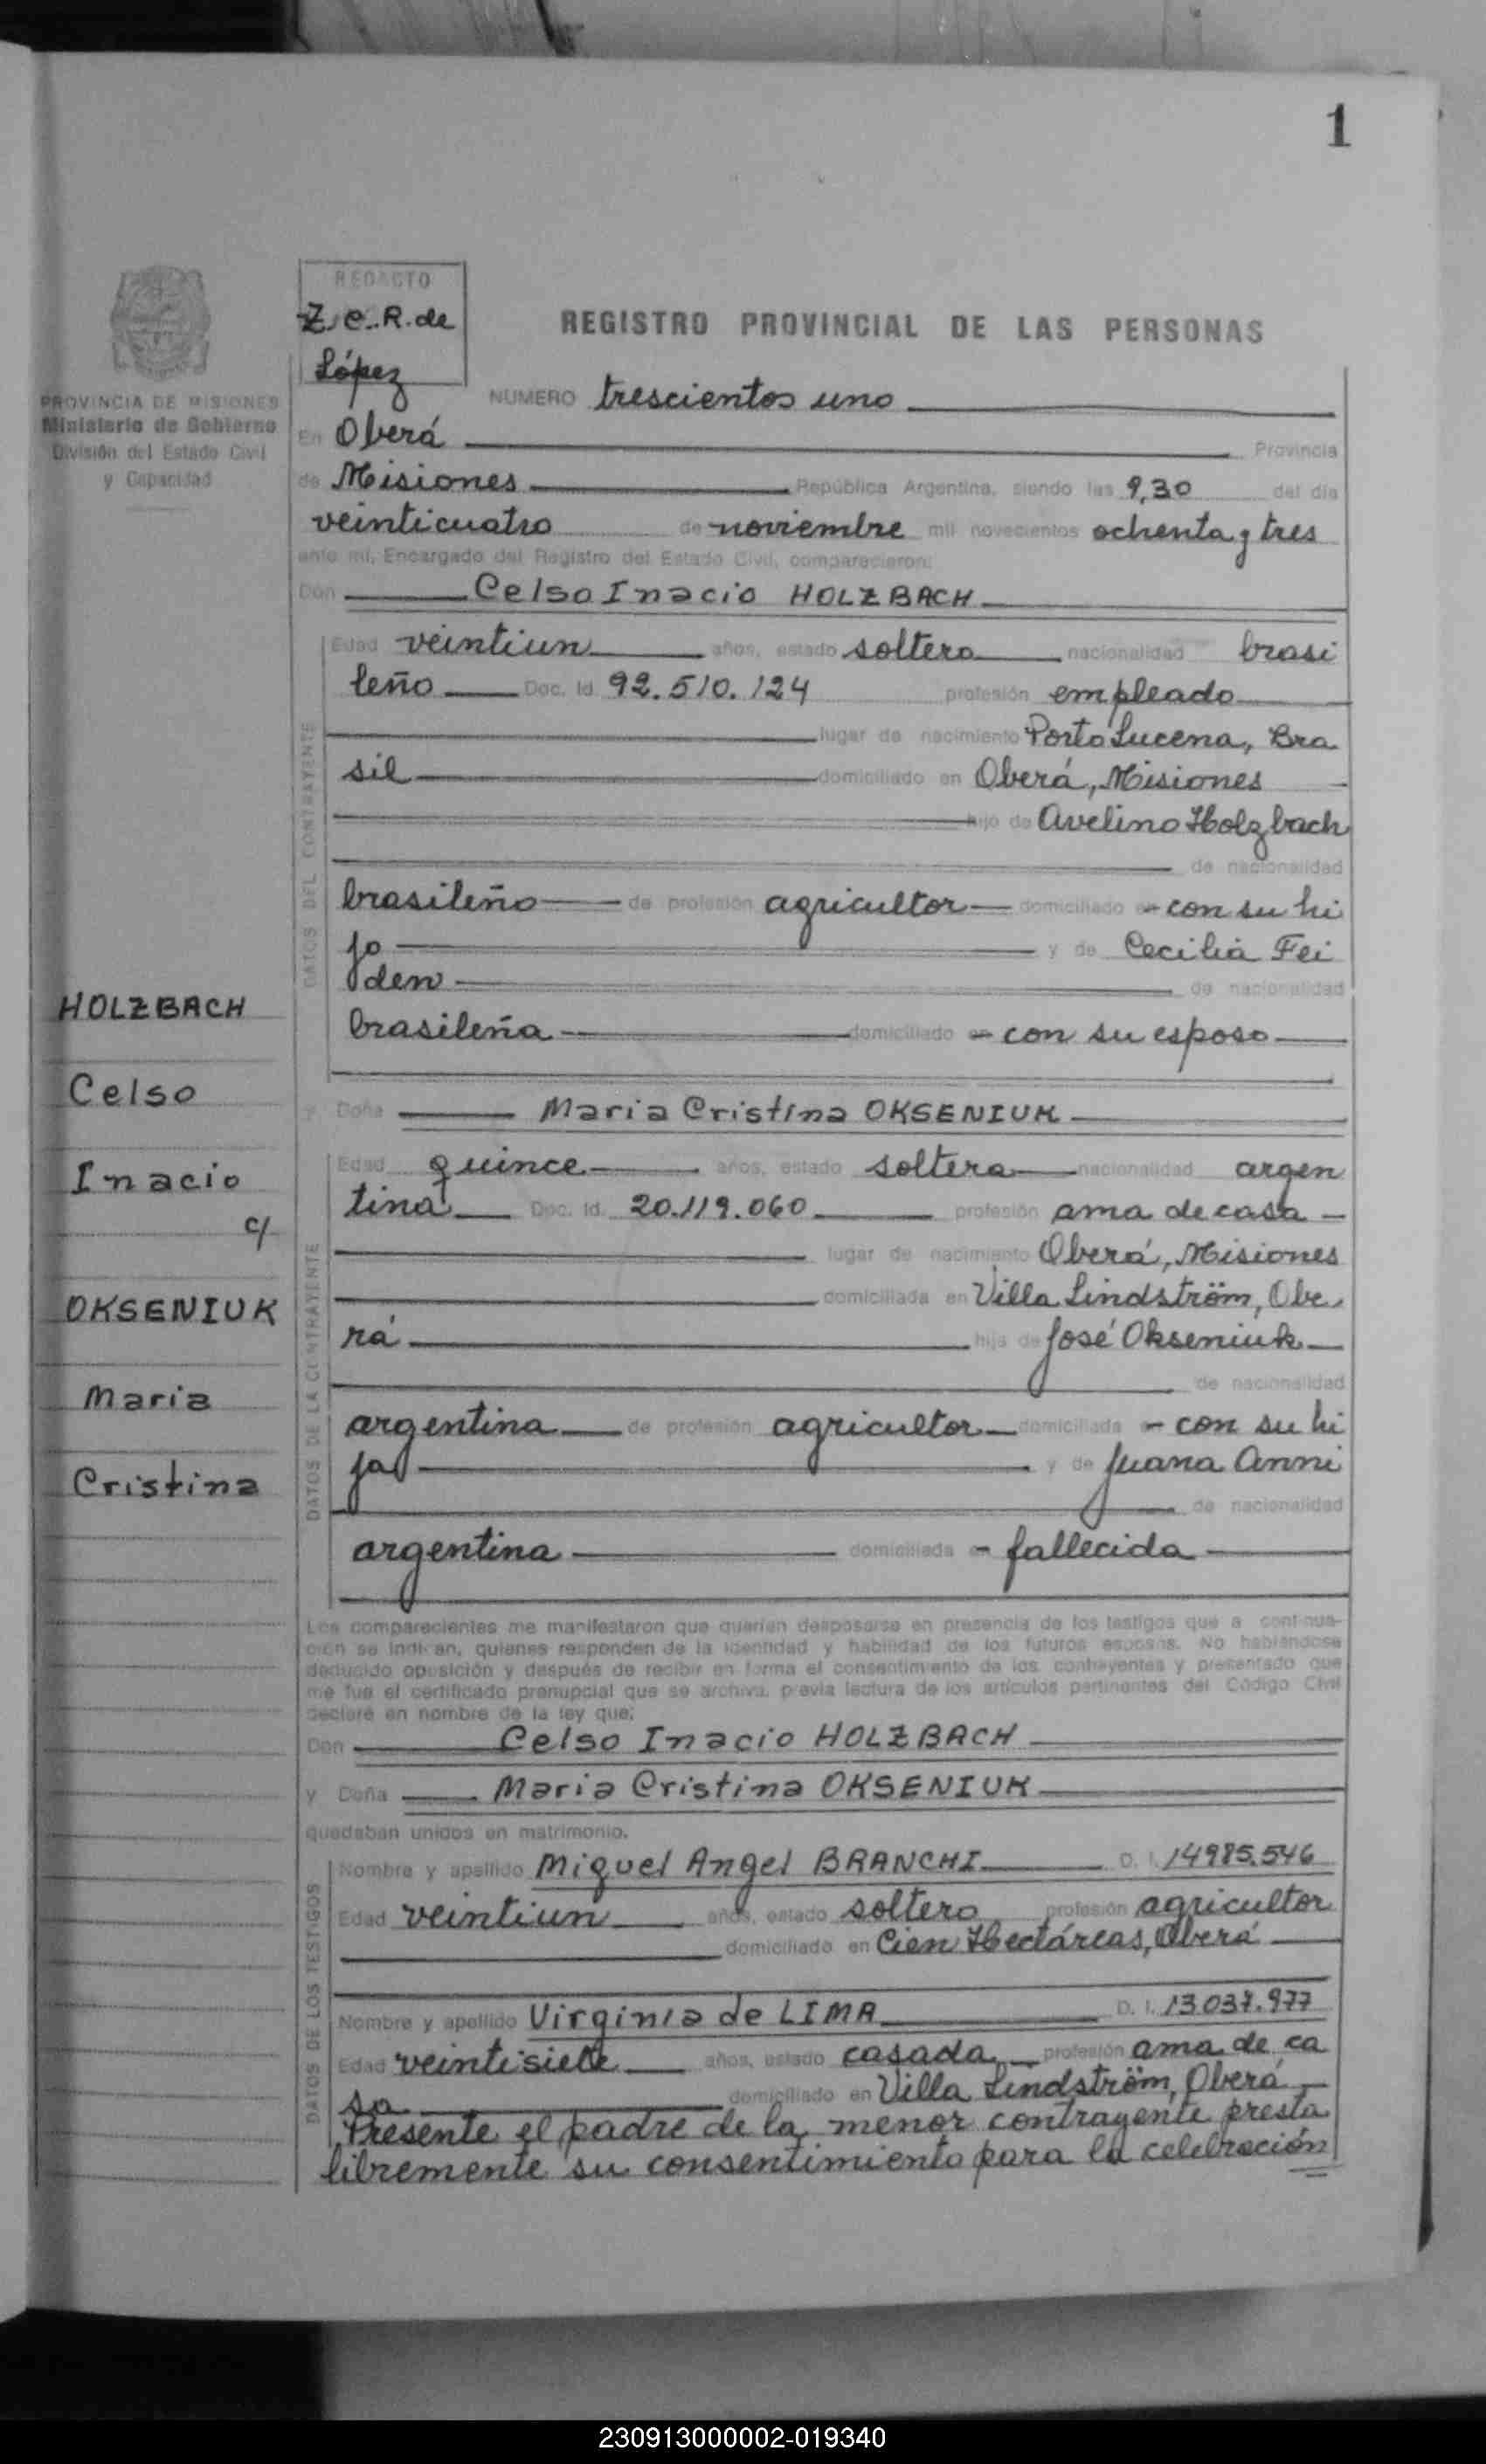 1
REDACTO
Z. C. R. de
López
REGISTRO PROVINCIAL DE LAS PERSONAS
PROVINCIA DE MISIONES
Ministerio de Gobierno
División del Estado Civil
y Capacidad
NUMERO trescientos uno
En Oberá Provincia
de Misiones República Argentina, siendo las 9,30 del día
veinticuatro de noviembre mil novecientos ochenta y tres
ante mí, Encargado del Registro del Estado Civil, comparecieron:
Don Celso Inacio HOLZBACH
DATOS DEL CONTRAYENTE
Edad veintiun años, estado soltero nacionalidad brasi
leño Doc. Id. 92.510.124 profesión empleado
lugar de nacimiento Porto Lucena, Bra
sil domiciliado en Oberá, Misiones
hijo de Avelino Holzbach
de nacionalidad
brasileño de profesión agricultor domiciliado - con su hi
jo y de Cecilia Fei
den de nacionalidad
brasileña domiciliado - con su esposo
y Doña Maria Cristina OKSENIUK
DATOS DE LA CONTRAYENTE
Edad quince años, estado soltera nacionalidad argen
tina Doc. Id. 20.119.060 profesión ama de casa
lugar de nacimiento Oberá, Misiones
domiciliada en Villa Lindström, Obe
rá hija de José Okseniuk
de nacionalidad
argentina de profesión agricultor domiciliada - con su hi
ja y de Juana Anni
de nacionalidad
argentina domiciliada - fallecida
HOLZBACH
Celso
Inacio
c/
OKSENIUK
Maria
Cristina
Los comparecientes me manifestaron que querían desposarse en presencia de los testigos que a continua-
ción se indican, quienes responden de la identidad y habilidad de los futuros esposos. No habiéndose
deducido oposición y después de recibir en forma el consentimiento de los contrayentes y presentado que
me fue el certificado prenupcial que se archiva, previa lectura de los artículos pertinentes del Código Civil
declaré en nombre de la ley que:
Don Celso Inacio HOLZBACH
y Doña Maria Cristina OKSENIUK
quedaban unidos en matrimonio.
DATOS DE LOS TESTIGOS
Nombre y apellido Miguel Angel BRANCHI D. I. 14985.546
Edad veintiun años, estado soltero profesión agricultor
domiciliado en Cien Hectáreas, Oberá
Nombre y apellido Virginia de LIMA D. I. 13.037.977
Edad veintisiete años, estado casada profesión ama de ca
sa domiciliado en Villa Lindström, Oberá
Presente el padre de la menor contrayente presta
libremente su consentimiento para la celebración
230913000002-019340